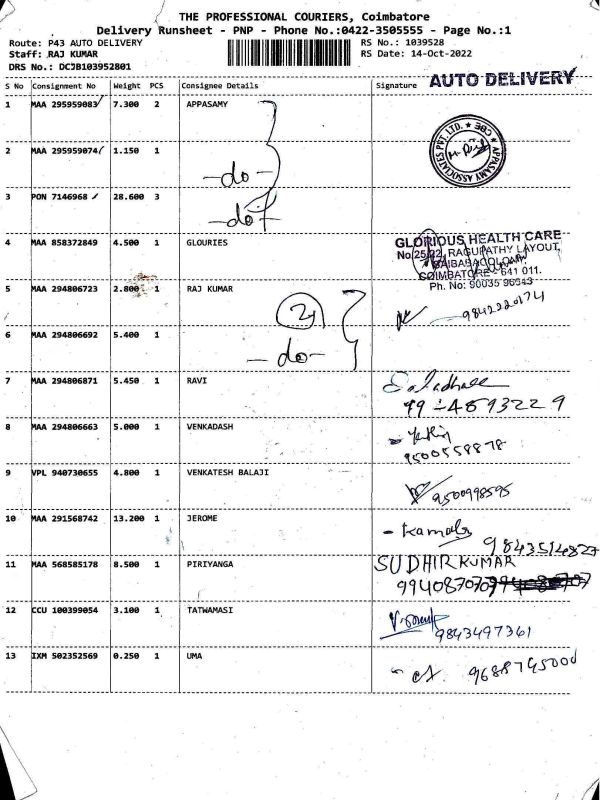 THE PROFESSIONAL COURIERS, Coimbatore
Delivery Runsheet - PNP - Phone No.:0422-3505555 - Page No.:1
Route: P43 AUTO DELIVERY RS No.: 1039528
Staff: RAJ KUMAR RS Date: 14-Oct-2022
DRS No.: DCJB103952801
AUTO DELIVERY
S No Consignment No Weight PCS Consignee Details Signature
1 MAA 295959083 7.300 2 APPASAMY
APPASAMY ASSOCIATES PVT. LTD. ★ CBE ★
2 MAA 295959074 1.150 1
-do-
3 PON 7146968 28.600 3
-do-
4 MAA 858372849 4.500 1 GLOURIES
GLORIOUS HEALTH CARE
No.25/22, RAGUPATHY LAYOUT,
SAIBABACOLONY,
COIMBATORE - 641 011.
Ph. No: 90035 96643
5 MAA 294806723 2.800 1 RAJ KUMAR
2
9842220174
6 MAA 294806692 5.400 1
-do-
7 MAA 294806871 5.450 1 RAVI
8 MAA 294806663 5.000 1 VENKADASH
9500558878
9 VPL 940730655 4.800 1 VENKATESH BALAJI
9500998595
10 MAA 291568742 13.200 1 JEROME
- Kamala
9843514827
11 MAA 568585178 8.500 1 PIRIYANGA
SUDHIR KUMAR
9940870707
12 CCU 100399054 3.100 1 TATWAMASI
9843497361
13 IXM 502352569 0.250 1 UMA
9688745000